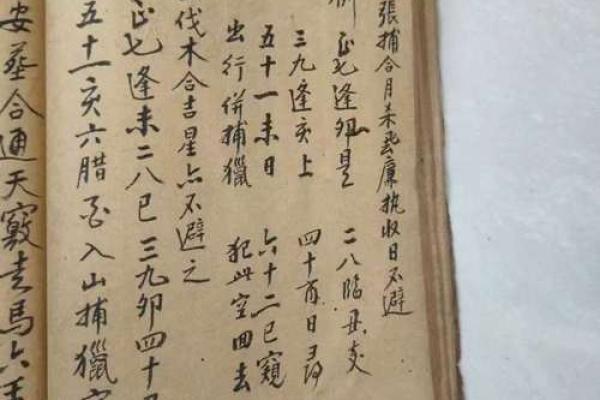 張捕合月未飛廉執收日不避
例正七逢卯是 二八臨丑支
三九逢亥上 四十酉日尋
五十一未日 六十二巳窺
出行併捕獵 犯此空回去
伐木合吉星亦不避之
正七逢未二八巳三九卯四十日
五十一亥六腊 入山捕獵
安葬合通天竅走馬六壬